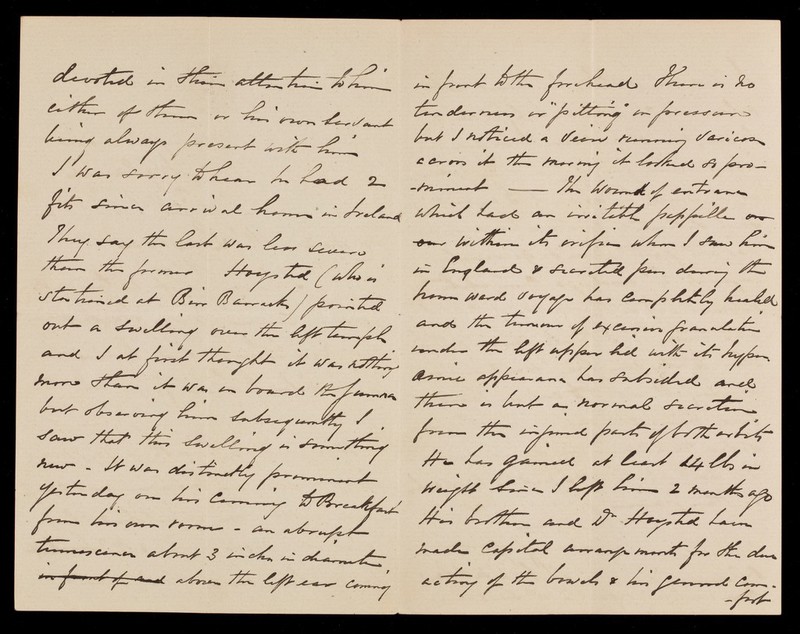 devoted in their attention to him
either of them or his own servant
being always present with him
I was sorry to hear he had 2
fits since arrival home in Ireland
They say the last was less severe
than the former Hoysted (who is
stationed at Birr Barracks) pointed
out a swelling over the left temple
and I at first thought it was nothing
more than it was on board the
but observing him subsequently I
saw that this swelling is something
new - It was distinctly prominent
yesterday on his coming to Breakfast
from his own room - an abrupt
tumescence about 3 inches in diameter,
in front of and above the left ear coming
in front to the forehead There is no
tenderness or "pitting" on pressure
but I noticed a vein running varicose
across it the morning it looked so pro-
-minent — The wound of entrance
which had an irritable papilla on
our within its orifice when I saw him
in England & secreted pus during the
homeward voyage has completely healed
and the tumour of excessive granulation
under the left upper lid with its hyper
aemic appearance has subsided and
there is but a normal secretion
from the injured parts of both orbits
He has gained at least 14 lbs in
weight since I left him 2 months ago
His brother and Dr Hoysted have
made capital arrangements for the due
acting of the bowels & his general com-
-fort